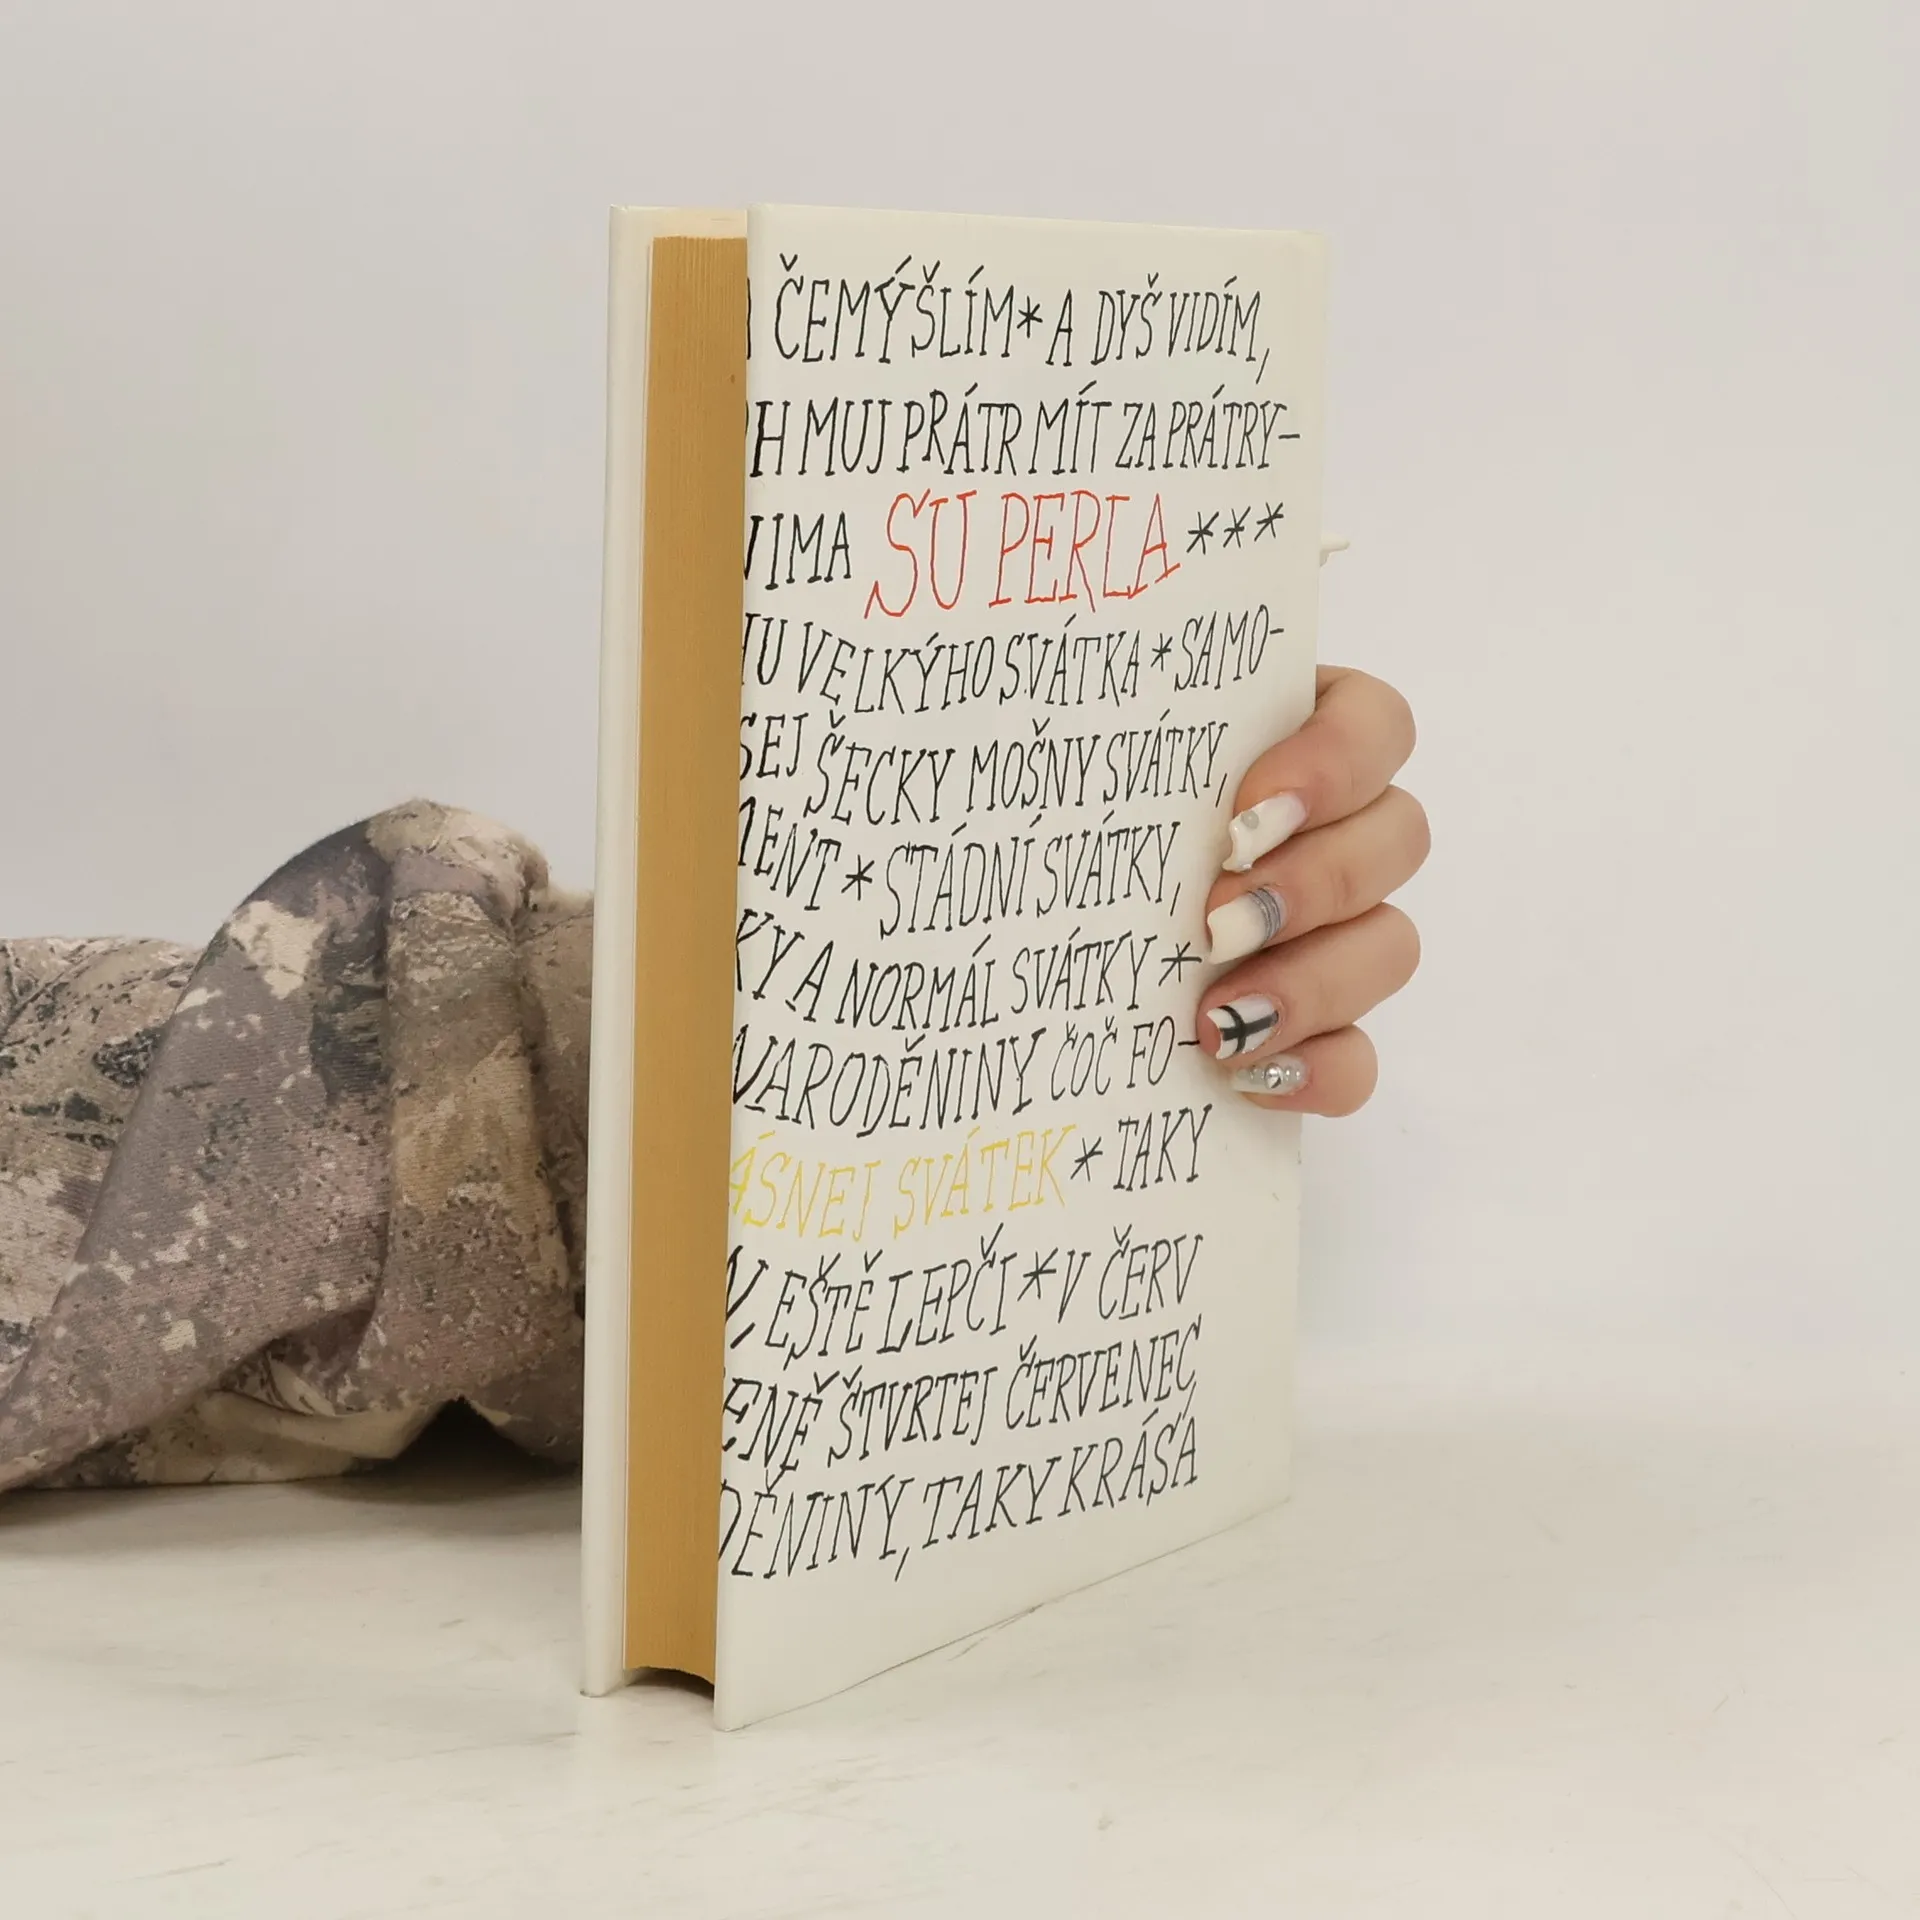 ČEMÝŠLÍM * A DYŠ VIDÍM,
H MUJ PRÁTR MÍT ZA PRÁTRY-
IMA SU PERLA ***
U VELKÝHO SVÁTKA * SAMO-
SEJ ŠECKY MOŠNY SVÁTKY,
MENT * STÁDNÍ SVÁTKY,
KY A NORMÁL SVÁTKY *
NARODĚNINY ČOČ FO-
ÁSNEJ SVÁTEK * TAKY
EŠTĚ LEPČI * V ČERV
ENĚ ŠTVRTEJ ČERVENEC,
DĚNINY, TAKY KRÁSÁ